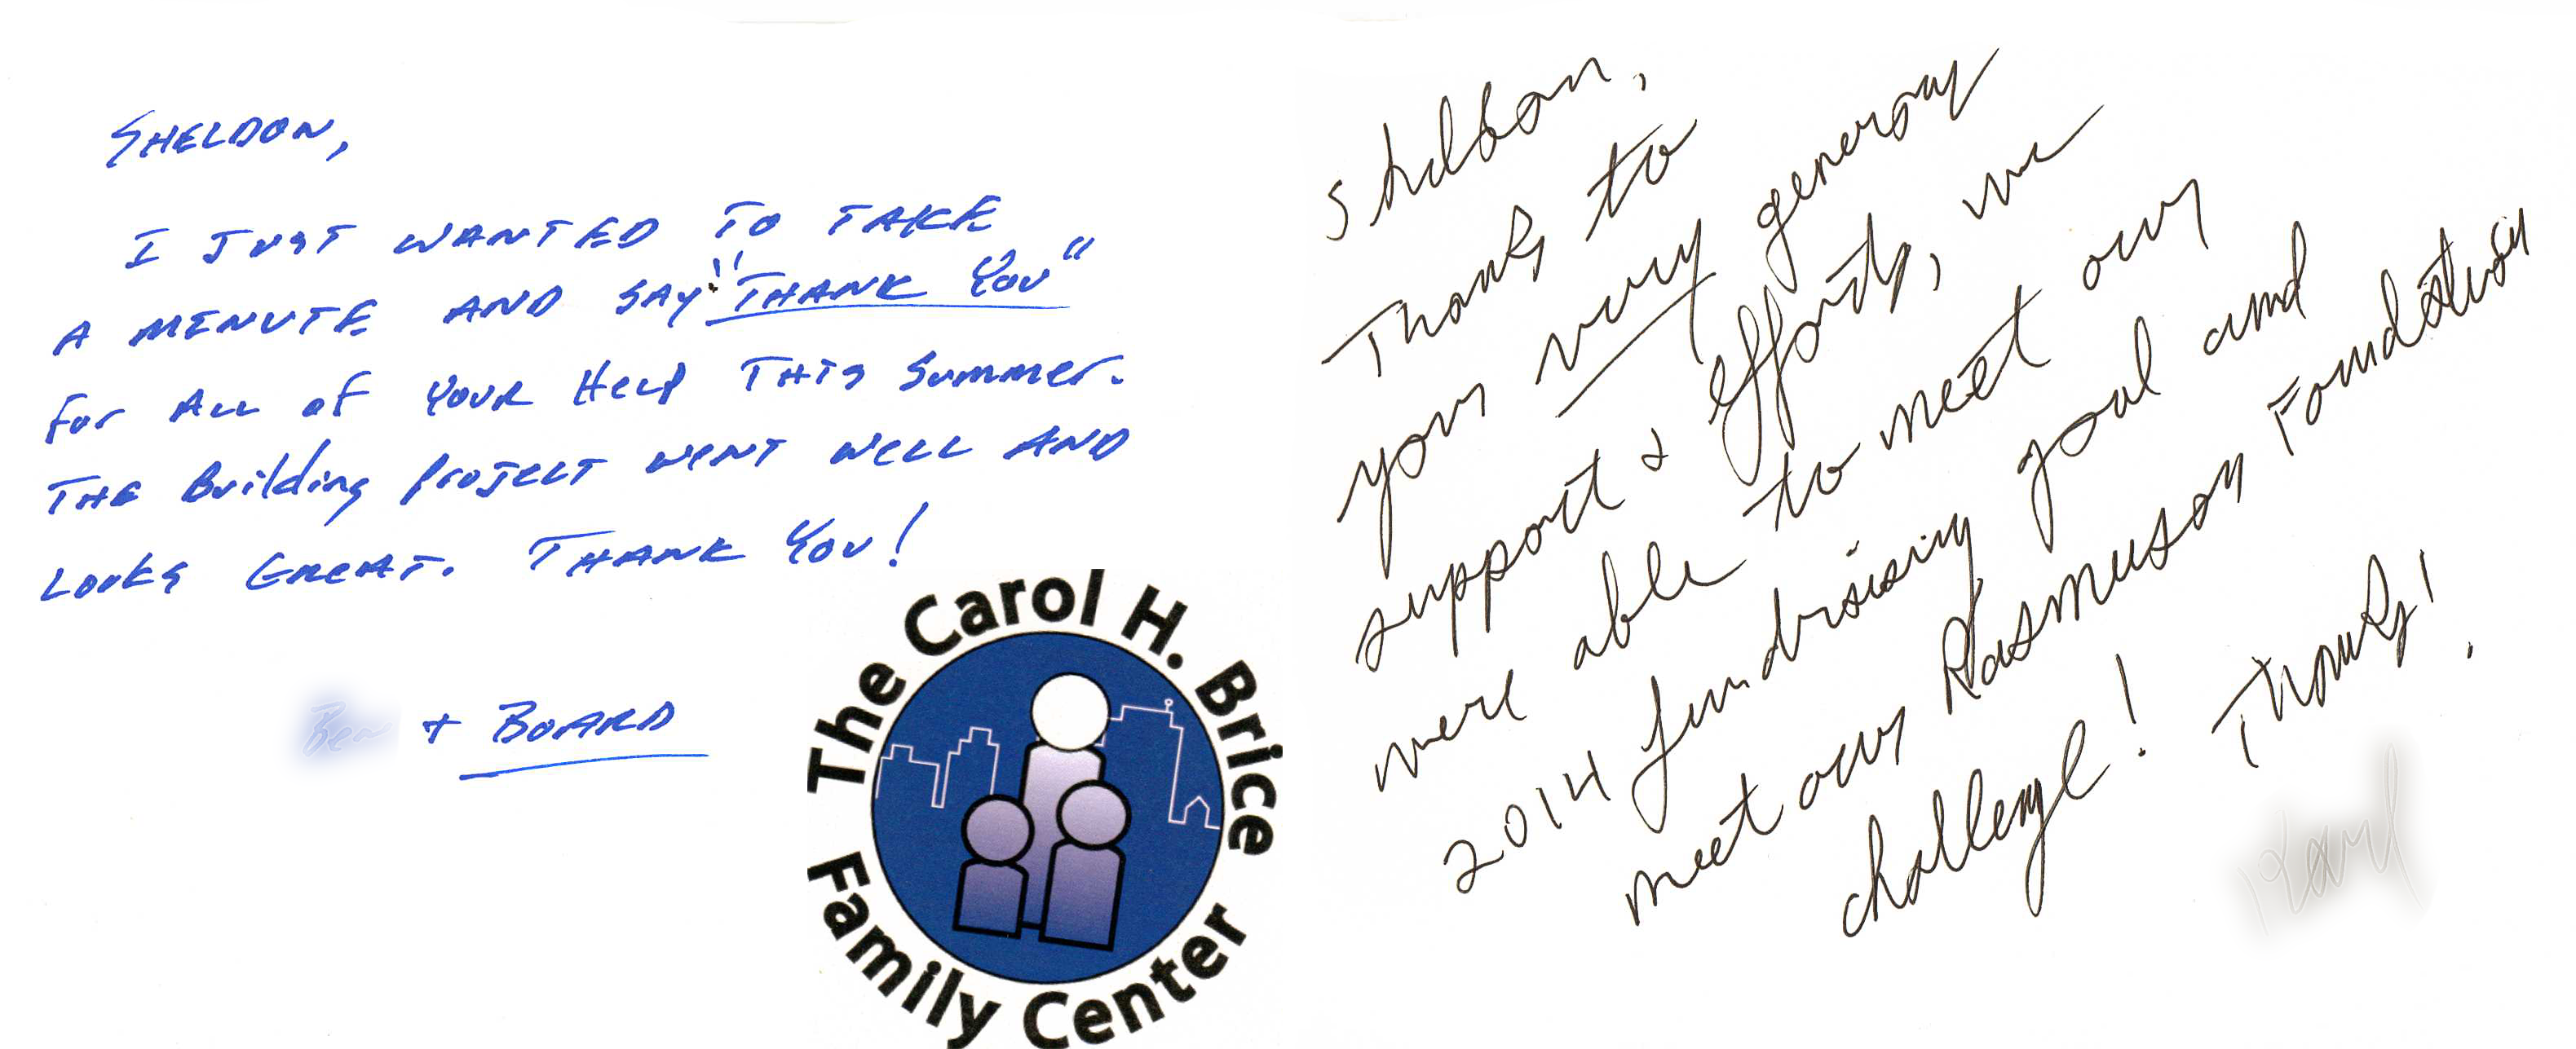 SHELDON,
I JUST WANTED TO TAKE
A MINUTE AND SAY "THANK YOU"
FOR ALL OF YOUR HELP THIS SUMMER.
THE BUILDING PROJECT WENT WELL AND
LOOKS GREAT. THANK YOU!
+ BOARD
The Carol H. Brice
Family Center
Sheldon,
Thanks to
your very generous
support & efforts, we
were able to meet our
2014 fundraising goal and
meet our Rasmuson Foundation
challenge! Thanks!